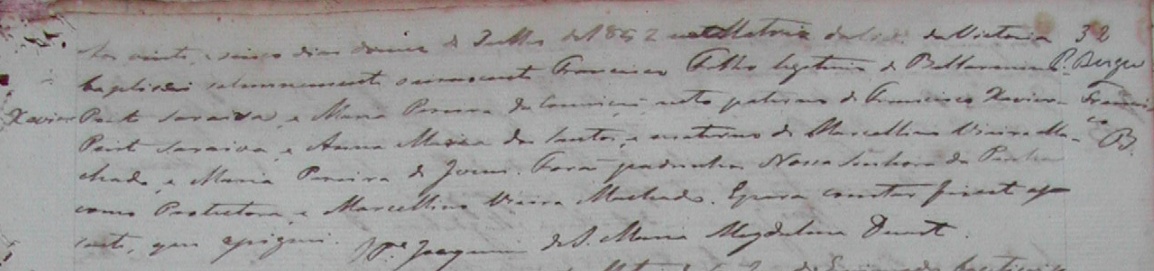 Aos vinte, e cinco dias do mez de Julho de 1852 nesta Matriz da Victoria 32
baptisei solemnemente innocente Francisco Filho legitimo de P. Berge
Xavier Port Saraiva, e Maria Pereira da Conceição neto paterno de Francisco Xavier Franci
Port Saraiva, e Anna Maria dos Santos, e materno de Marcellino Vieira Ma- co
chado, e Maria Pereira de Jesus. Forão padrinhos Nossa Senhora da Penha B.
como Protectora, e Marcellino Vieira Machado. E para constar fiz este as
sento, que assignei. Pe. Joaquim de S. Maria Magdalena Duarte.